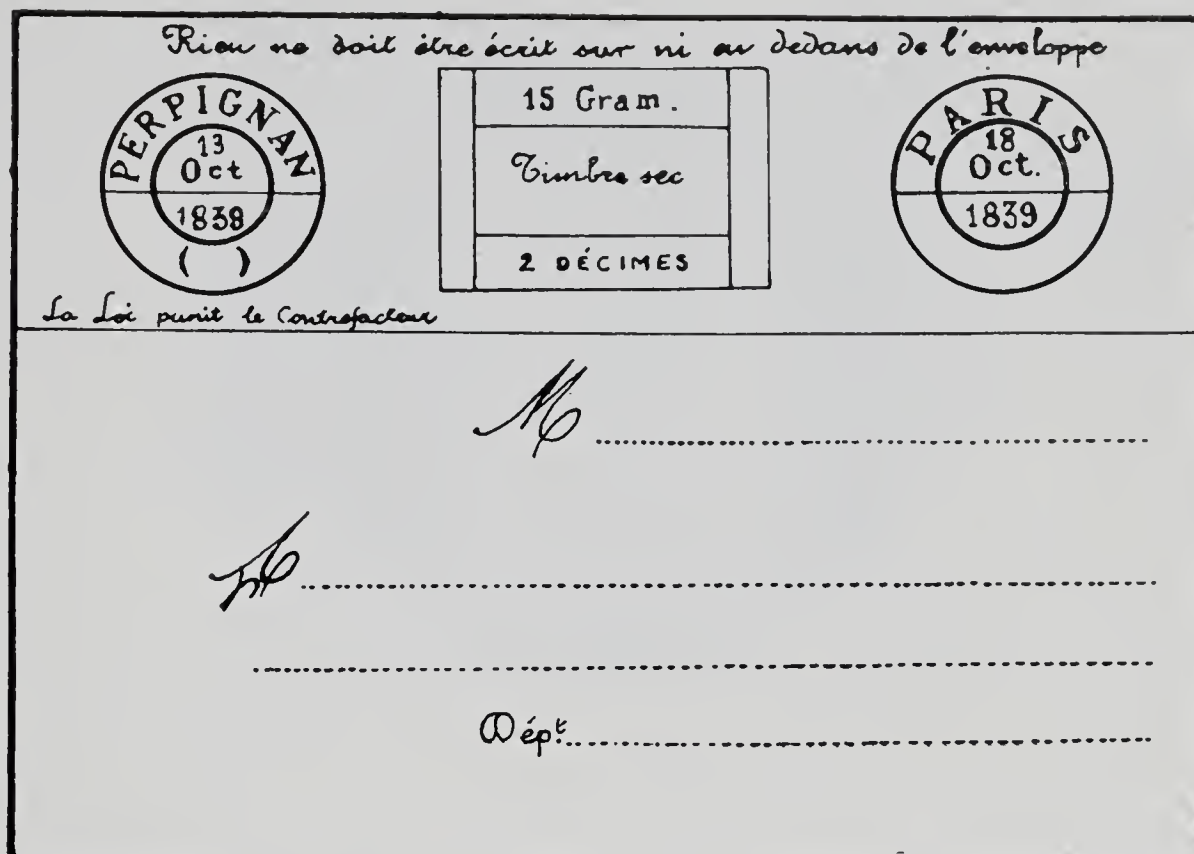 Rien ne doit être écrit sur ni au dedans de l'enveloppe
PERPIGNAN
13
Oct
1838
( )
15 Gram.
Timbre sec
2 DÉCIMES
PARIS
18
Oct.
1839
La Loi punit le Contrefacteur
M
A
Dépt.